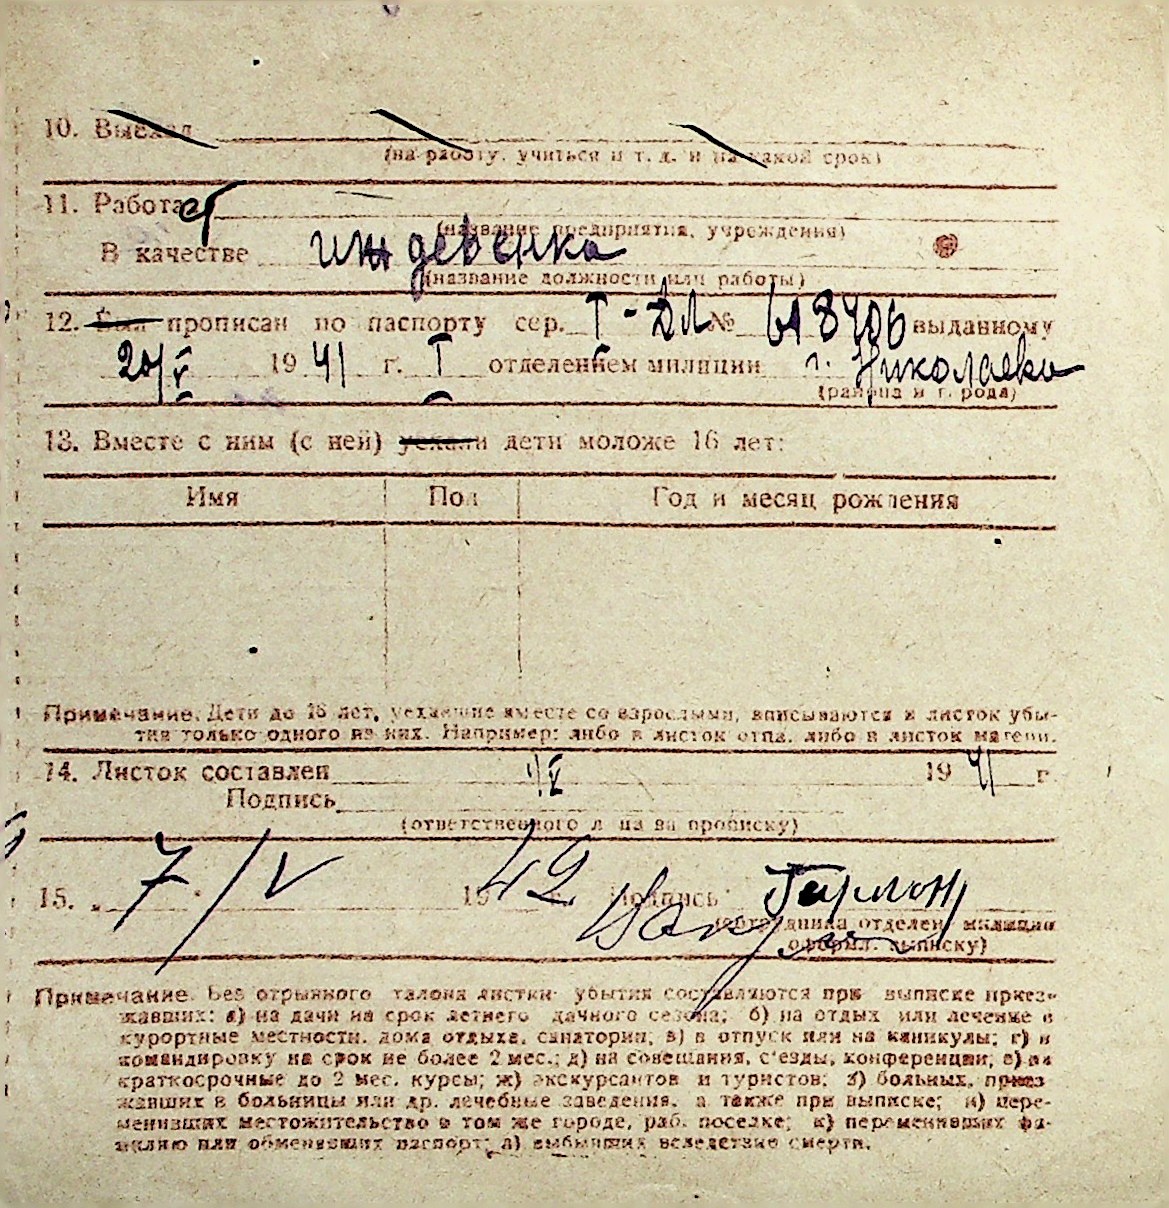 10. Выехал
(на работу, учиться и т. д. и на какой срок)
11. Работает
(название предприятия, учреждения)
В качестве иждевенка
(название должности или работы)
12. Был прописан по паспорту сер. Т-ДЛ № 618406 выданному
20/V 1941 г. I отделением милиции г. Николаева
(района и города)
13. Вместе с ним (с ней) уехали дети моложе 16 лет:
Имя Пол Год и месяц рождения
Примечание. Дети до 16 лет, уехавшие вместе со взрослыми, вписываются в листок убы-
тия только одного из них. Например: либо в листок отца, либо в листок матери.
14. Листок составлен V 1941 г.
Подпись
(ответственного л на за прописку)
15. 7/V 1942 г. Подпись
(сотрудника отделен. милиции
оформл. выписку)
Примечание. Без отрывного талона листки убытия составляются при выписке приез-
жавших: а) на дачи на срок летнего дачного сезона; б) на отдых или лечение в
курортные местности, дома отдыха, санатории; в) в отпуск или на каникулы; г) в
командировку на срок не более 2 мес.; д) на совещания, с'езды, конференции; е) на
краткосрочные до 2 мес. курсы; ж) экскурсантов и туристов; з) больных, приез
жавших в больницы или др. лечебные заведения, а также при выписке; и) пере-
менивших местожительство в том же городе, раб. поселке; к) переменивших фа-
милию или обменявших паспорт; л) выбывших вследствие смерти.